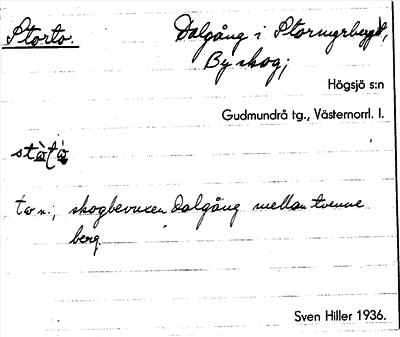 Storto. Dalgång i Stormyrberget,
By skog;
Högsjö s:n
Gudmundrå tg., Västernorrl. l.
stòtò
to n.; skogbevuxen dalgång mellan tvenne
berg.
Sven Hiller 1936.